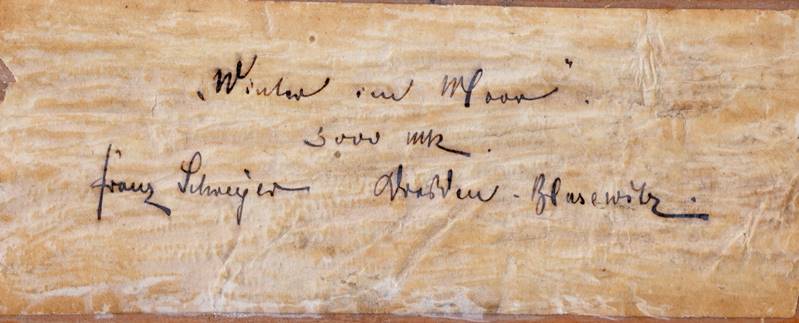 „Winter im Moor".
3000 Mk.
Franz Schreyer Dresden - Blasewitz.